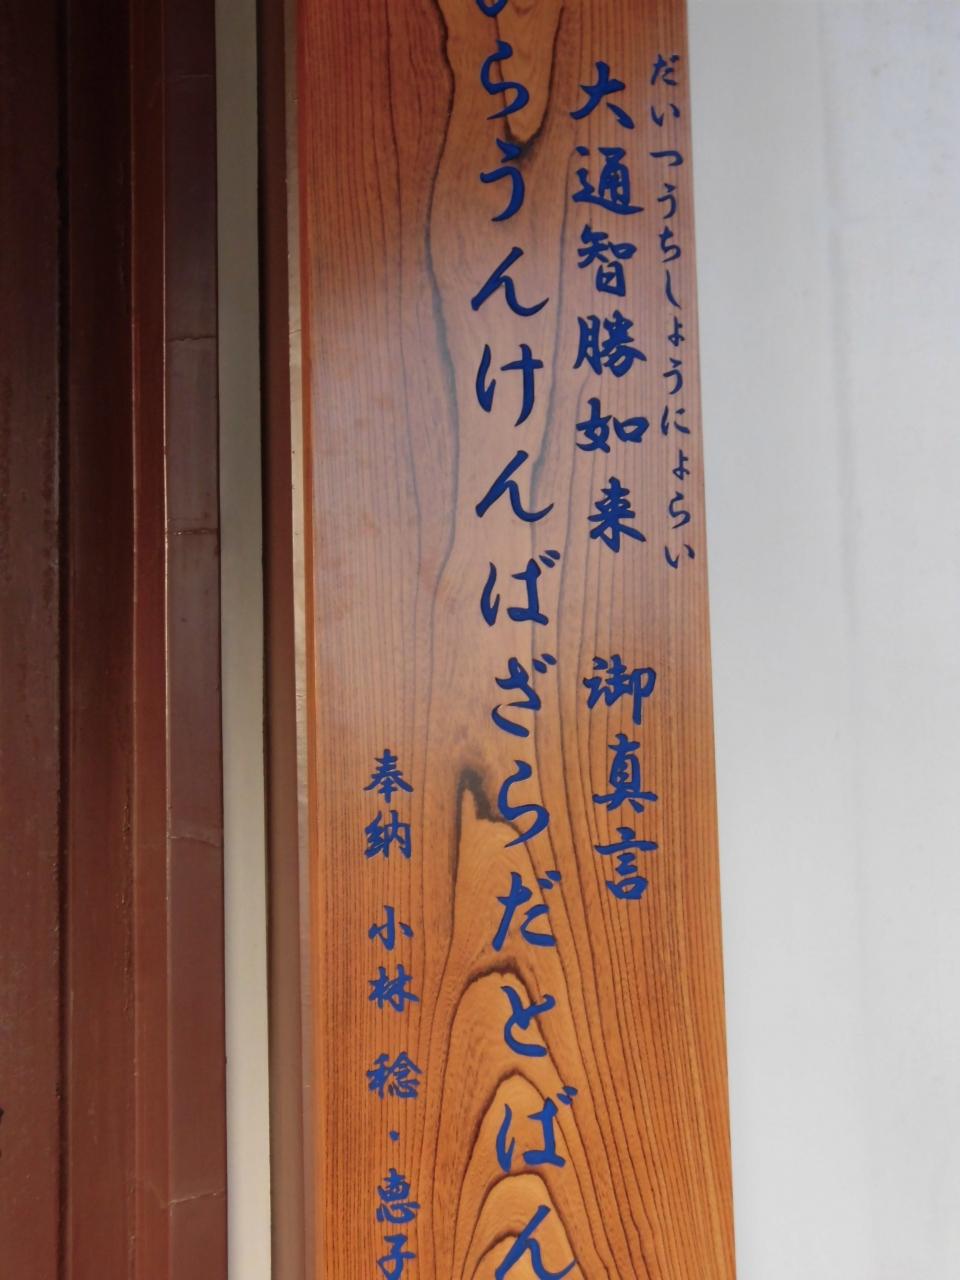 だいつうちしょうにょらい
大通智勝如来 御真言
らうんけんばざらだとばん
奉納 小林 稔・恵子